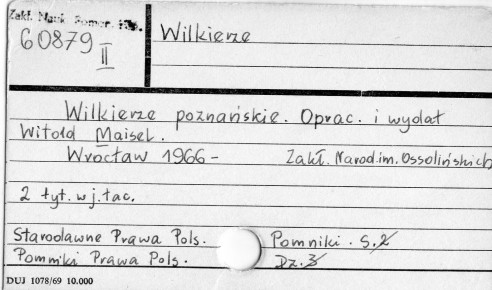 Zakł. Nauk. Pomoc. Hist.
60879
II
Wilkierze
Wilkierze poznańskie. Oprac. i wydał
Witold Maisel.
Wrocław 1966 - Zakł. Narod. im. Ossolińskich
2 tyt. w j. łac.
Starodawne Prawa Pols. Pomniki. S. 2
Pomniki Prawa Pols. Dz. 3
DUJ 1078/69 10.000